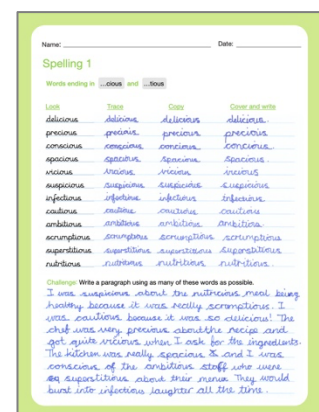 Name: Date:
Spelling 1
Words ending in ...cious and ...tious
Look Trace Copy Cover and write
delicious delicious delicious delicious.
precious precious precious precious
conscious conscious concious concious.
spacious spacious spacious spacious.
vicious vicious vicious vicious
suspicious suspicious suspicious suspicious
infectious infectious infectious infectious
cautious cautious cautious cautious
ambitious ambitious ambitious ambitious
scrumptious scrumptious scrumptious scrumptious
superstitious superstitious superstitious superstitious
nutritious nutritious nutritious nutritious.
Challenge: Write a paragraph using as many of these words as possible.
I was suspicious about the nutricious meal being
healthy because it was really scromptious. I
was cautious because it was so delicious! The
chef was very precious about the recipe and
got quite vicious when I ask for the ingredients.
The kitchen was really spacious & and I was
conscious of the ambitious staff who were
superstitious about their menu. They would
burst into infectious laughter all the time.